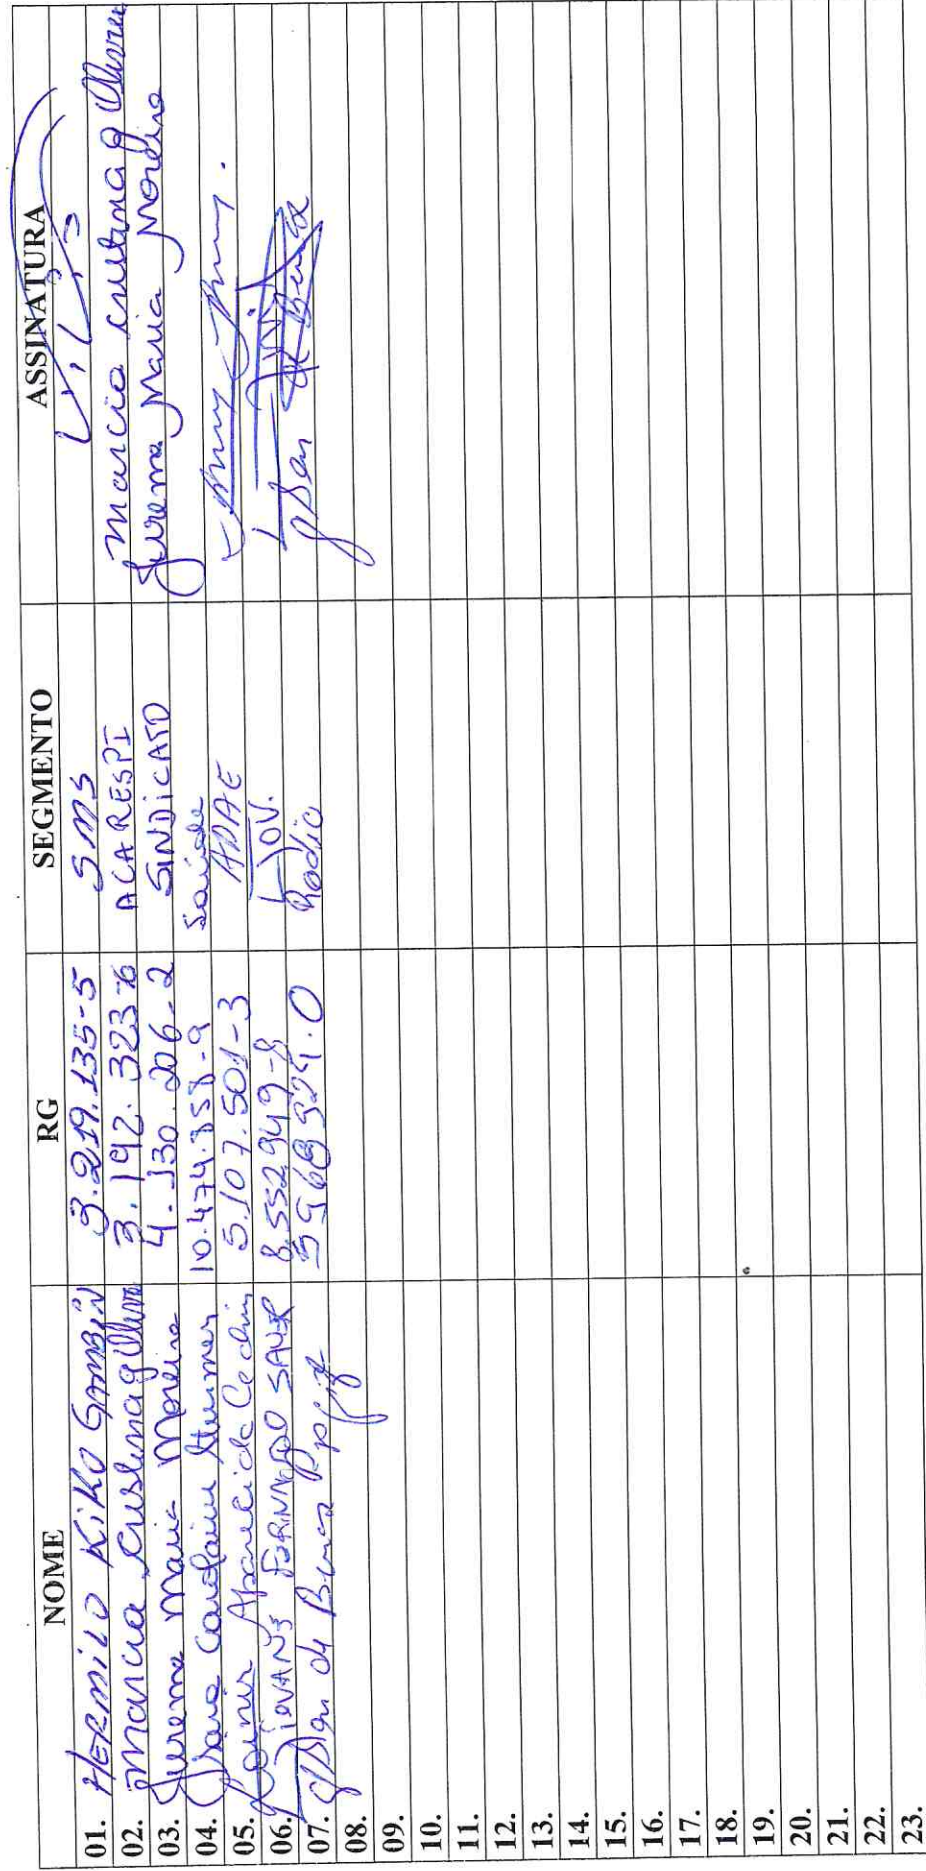 NOME RG SEGMENTO ASSINATURA
01. HERMILO KIKO GAMBIN 3.219.135-5 SMS
02. Marcia Cristina g Olivra 3.192.323-6 ACARESPI Marcia Cristina g Olivra
03. Jurema Maria Moreira 4.130.206-2 SINDICATO Jurema Maria Moreira
04. Carolaine 10.474.358-9 Saúde
05. Aparecida Cechin 5.107.501-3 ADAE
06. GIOVANI FERNANDO SAUER 8.552949-8 GOV.
07. 5968924.0 Radio
08.
09.
10.
11.
12.
13.
14.
15.
16.
17.
18.
19.
20.
21.
22.
23.